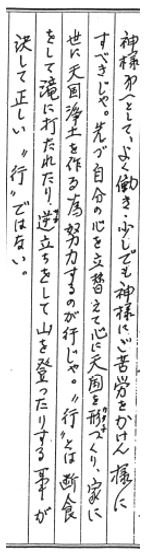 神様第一として、よく働き少しでも神様にご苦労をかけん様に
すべきじゃ。先づ自分の心を立替えて心に天国を形づくり、家に
世に天国浄土を作る為努力するのが行じゃ。〝行〟とは断食
をして滝に打たれたり、逆立ちをして山を登ったりする事が
決して正しい〝行〟ではない。